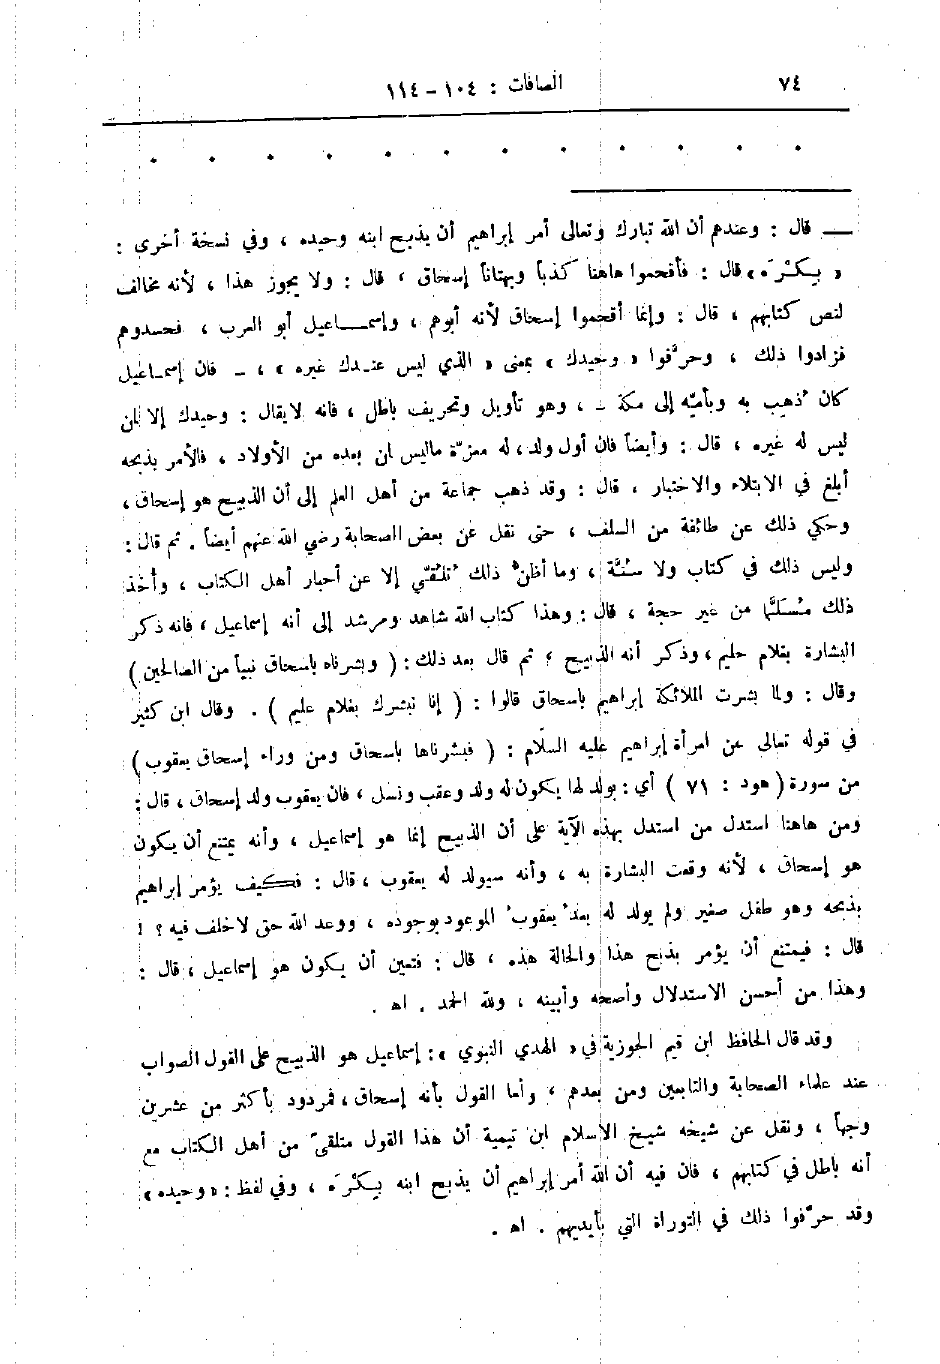 ٧٤
الصافات : ١٠٤ - ١١٤
. . . . . . . . . . . .
ــ قال : وعندهم أن الله تبارك وتعالى أمر إبراهيم أن يذبح ابنه وحيده ، وفي نسخة أخرى :
« بِكْرَه » قال : فأقحموا هاهنا كذباً وبهتاناً إسحاق ، قال : ولا يجوز هذا ، لأنه مخالف
لنص كتابهم ، قال : وإنما أقحموا إسحاق لأنه أبوهم ، وإسمـاعيل أبو العرب ، فحسدوهم
فزادوا ذلك ، وحرَّفوا « وحيدك » بمعنى « الذي ليس عندك غيره » ، ـ فان إسمـاعيل
كان ذُهب به وبأميّه إلى مكة ـ ، وهو تأويل وتحريف باطل ، فانه لا يقال : وحيدك إلا لمن
ليس له غيره ، قال : وأيضاً فان أول ولد ، له معزّة ماليس لمن بعده من الأولاد ، فالأمر بذبحه
أبلغ في الابتلاء والاختبار ، قال : وقد ذهب جماعة من أهل العلم إلى أن الذبيح هو إسحاق ،
وحكي ذلك عن طائفة من السلف ، حتى نقل عن بعض الصحابة رضي الله عنهم أيضاً . ثم قال :
وليس ذلك في كتاب ولا سُنَّة ، وما أظنُّ ذلك تُلُقّي إلا عن أحبار أهل الكتاب ، وأُخذ
ذلك مُسَلَّماً من غير حجة ، قال : وهذا كتاب الله شاهد ومرشد إلى أنه إسماعيل ، فانه ذكر
البشارة بغلام حليم ، وذكر أنه الذبيح ؛ ثم قال بعد ذلك : ( وبشرناه باسحاق نبياً من الصالحين )
وقال : ولما بشرت الملائكة إبراهيم باسحاق قالوا : ( إنا نبشرك بغلام عليم ) . وقال ابن كثير
في قوله تعالى عن امرأة إبراهيم عليه السلام : ( فبشرناها باسحاق ومن وراء إسحاق يعقوب )
من سورة ( هود : ٧١ ) أي : بولد لها يكون له ولد وعقب ونسل ، فان يعقوب ولد إسحاق ، قال :
ومن هاهنا استدل من استدل بهذه الآية على أن الذبيح إنما هو إسماعيل ، وأنه يمتنع أن يكون
هو إسحاق ، لأنه وقعت البشارة به ، وأنه سيولد له يعقوب ، قال : فكيف يؤمر إبراهيم
بذبحه وهو طفل صغير ولم يولد له بعدُ يعقوبُ الموعود بوجوده ، ووعد الله حق لا خلف فيه ؟ !
قال : فيمتنع أن يؤمر بذبح هذا والحالة هذه ، قال : فتعين أن يكون هو إسماعيل ، قال :
وهذا من أحسن الاستدلال وأصحه وأبينه ، ولله الحمد . اه .
وقد قال الحافظ ابن قيم الجوزية في « الهدي النبوي » : إسماعيل هو الذبيح على القول الصواب
عند علماء الصحابة والتابعين ومن بعدهم ، وأما القول بأنه إسحاق ، فمردود بأكثر من عشرين
وجهاً ، ونقل عن شيخه شيخ الاسلام ابن تيمية أن هذا القول متلقىً من أهل الكتاب مع
أنه باطل في كتابهم ، فان فيه أن الله أمر إبراهيم أن يذبح ابنه بِكْرَه ، وفي لفظ : « وحيده »
وقد حرّفوا ذلك في التوراة التي بأيديهم . اه .